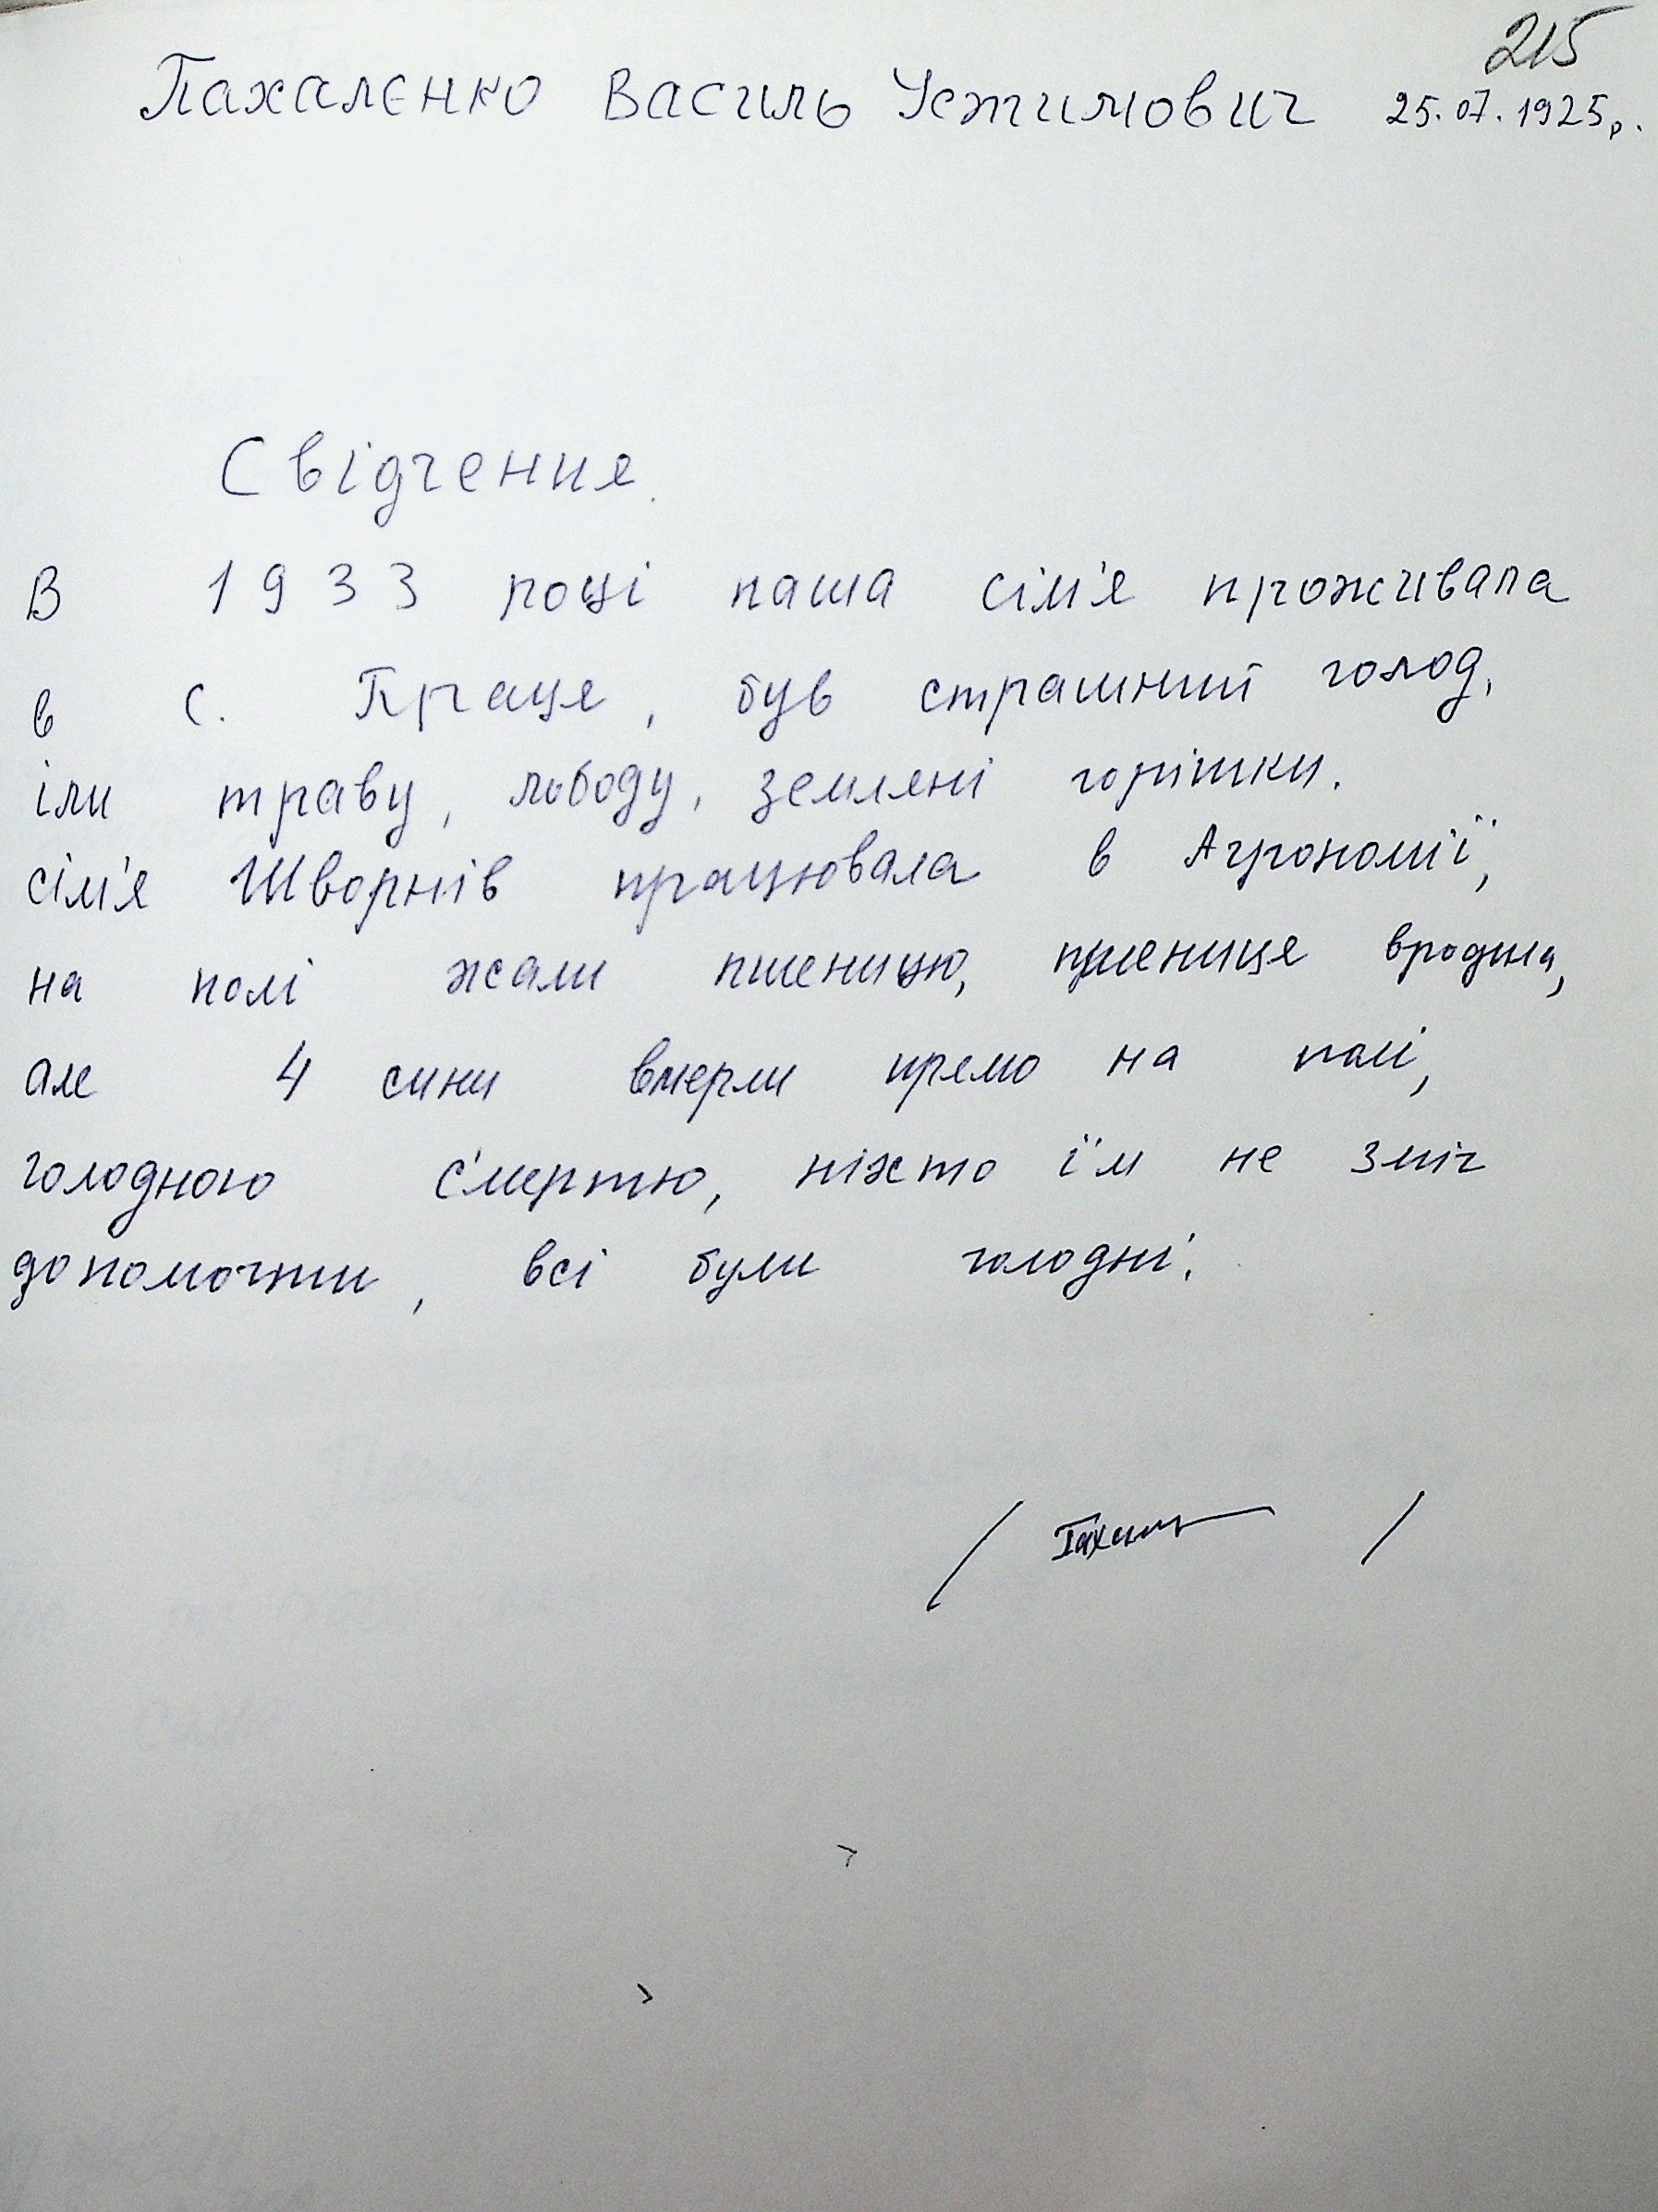 215
Пахалєнко Василь Устимович 25.07.1925р.
Свідчення.
В 1933 році наша сім'я проживала
в с. Праця, був страшний голод,
їли траву, лободу, земляні горішки.
сім'я Шворнів працювала в Агрономії,
на полі жали пшеницю, пшениця вродила,
але 4 сини вмерли прямо на полі,
голодною смертю, ніхто їм не зміг
допомогти, всі були голодні.